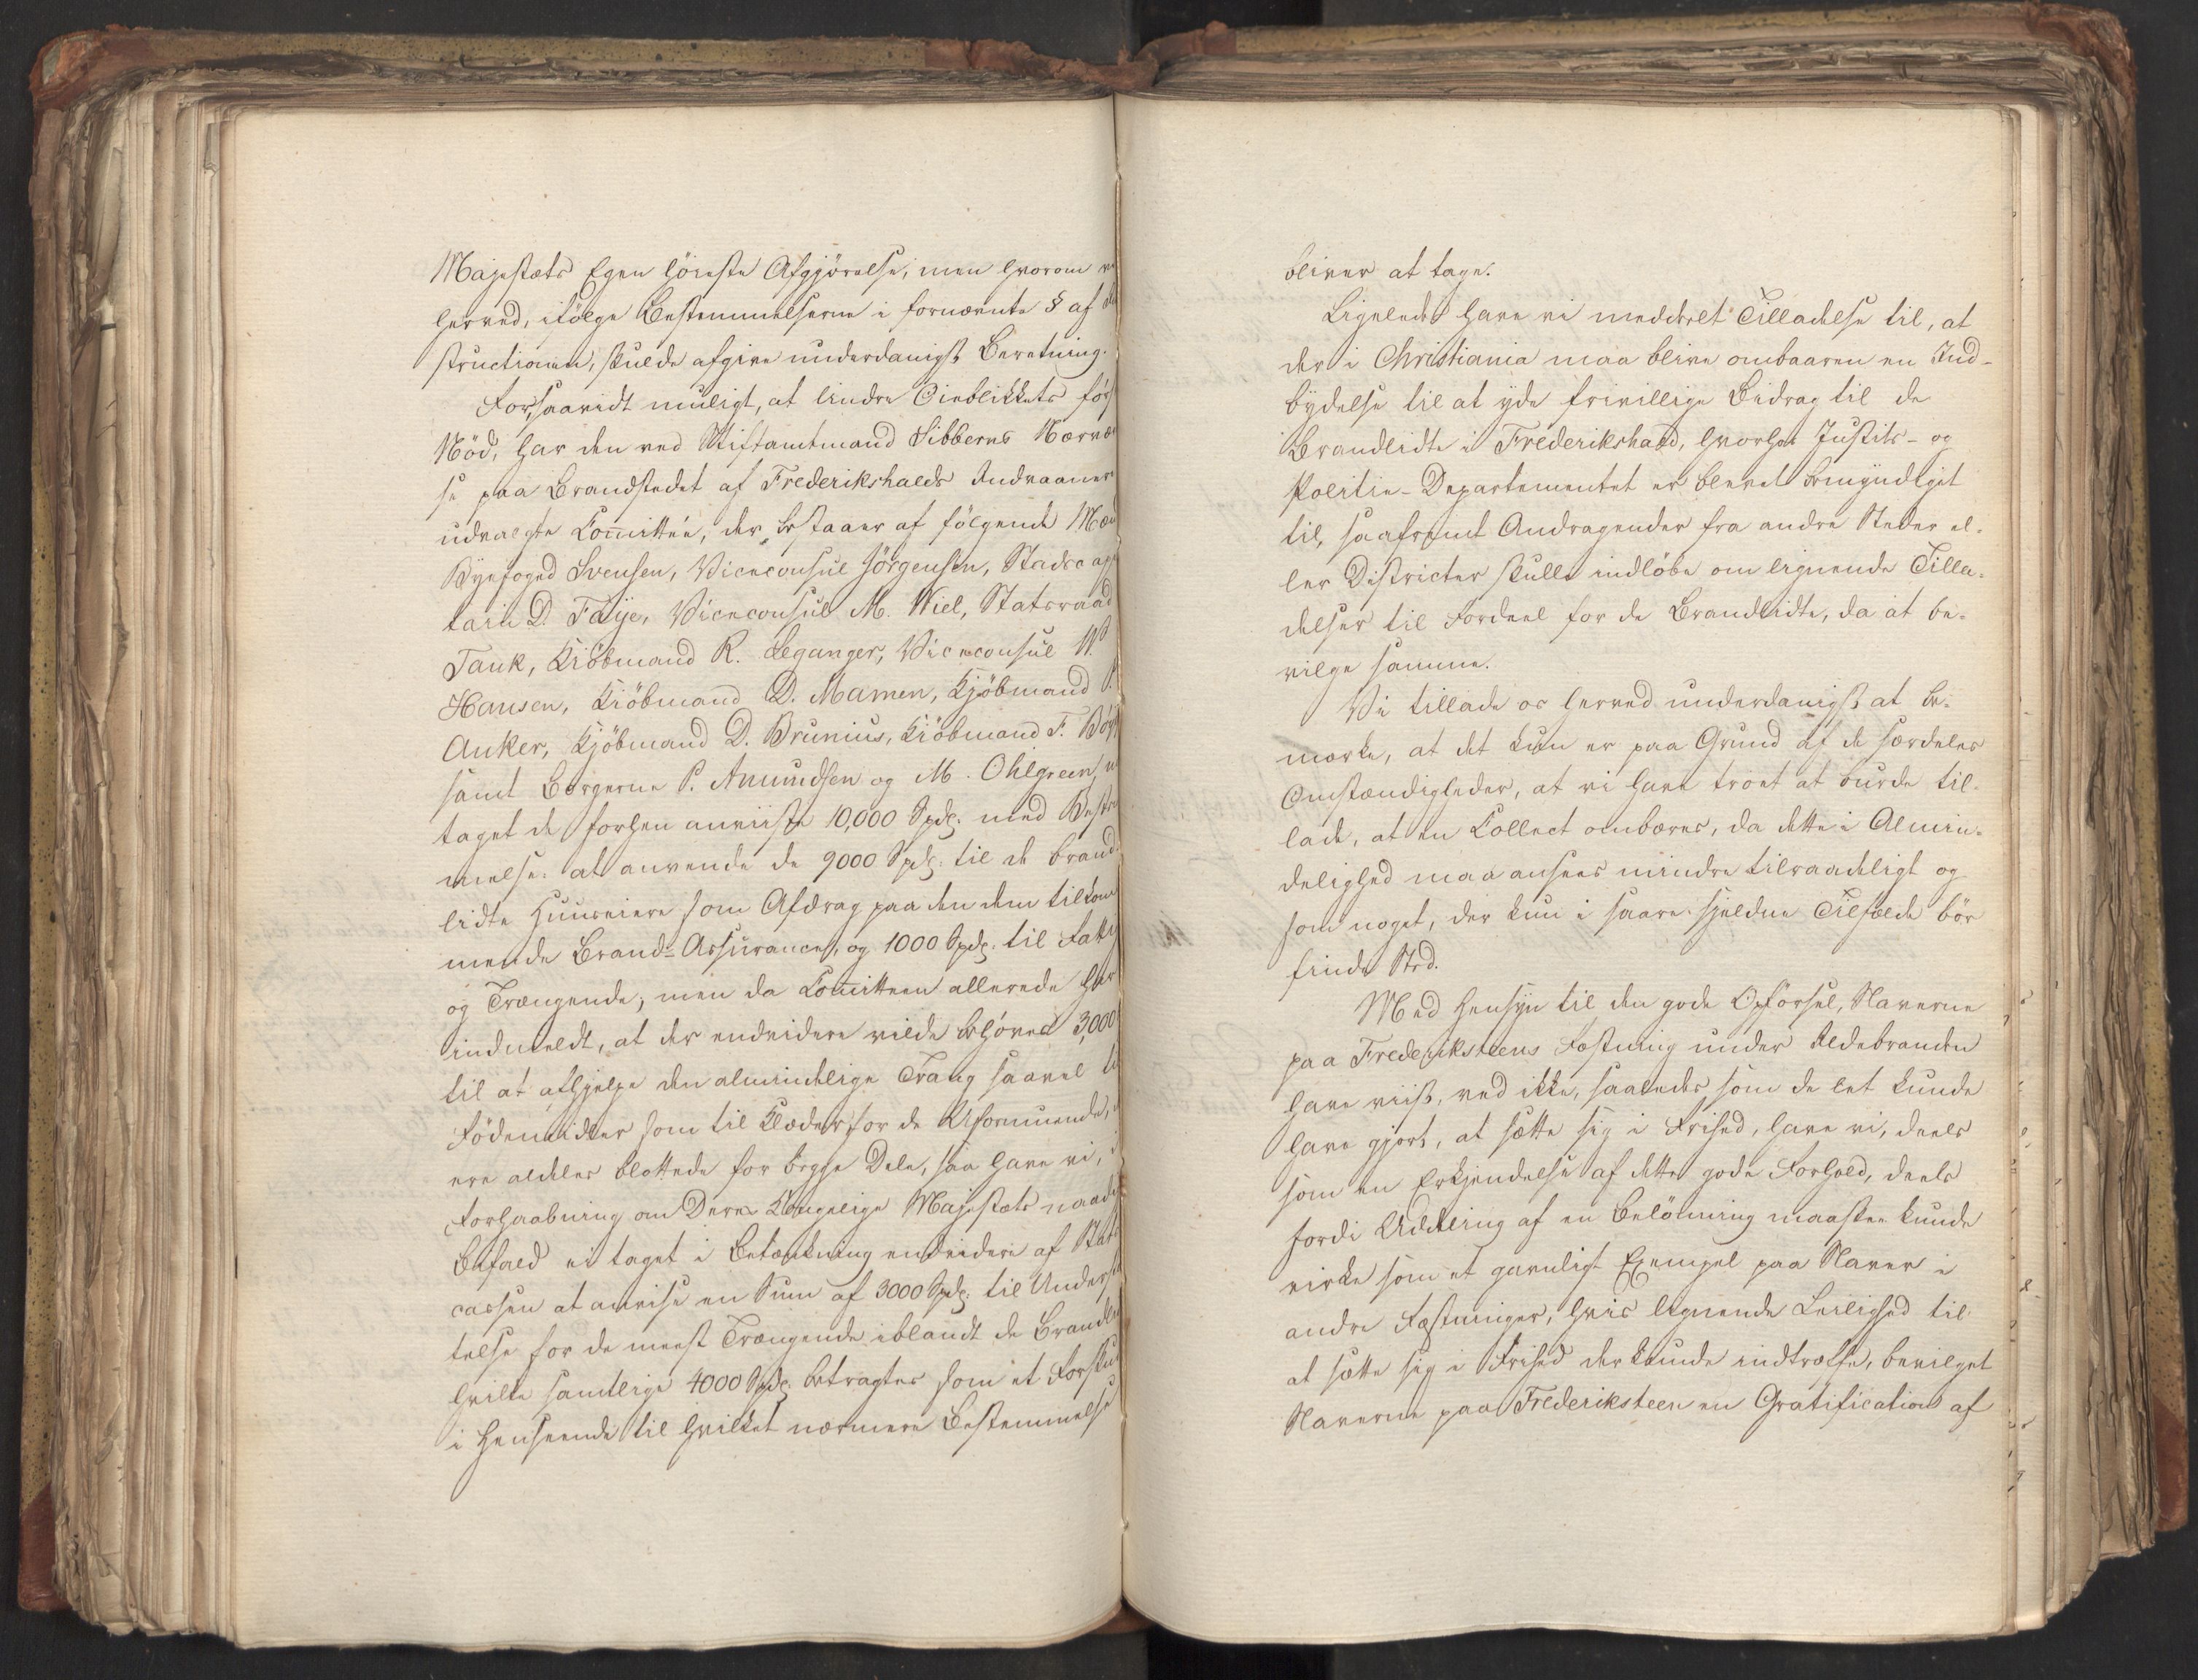 Majestæts Egen höieste Afgjörelse, men hvorom vi
herved, ifölge Bestemmelserne i fornævnte § af
structionen, skulde afgive underdanigst Beretning.
For, saavidt muligt, at lindre Öieblikkets förste
Nöd, har den ved Stiftamtmand Sibberns Nærvæ
se paa Brandstedet af Frederikshalds Indvaanere
udvalgte Comittée, der bestaaer af fölgende Mænd
Byefoged Svensen, Viceconsul Jörgensen, Stadscap
tain D. Faÿe, Viceconsul M. Wiel, Statsraad
Tank, Kiöbmand R. Leganger, Viceconsul
Hansen, Kiöbmand D. Mamen, Kjöbmand P.
Anker, Kjöbmand D. Brunius, Kiöbmand F.
samt Borgerne P. Amundsen og M. Ohlgreen,
taget de forhen anviiste 10,000 Spdlr. med Bestem
melse: at anvende de 9000 Spdlr. til de brand
lidte Huuseiere som Afdrag paa den dem tilkom
mende Brand-Assurance, og 1000 Spdlr. til Fattige
og Trængende; men da Comitteen allerede har
indmeldt, at der endvidere vilde behöves 3,000
til at afhjelpe den almindelige Trang saavel til
Födemidler som til Klæder for de Uformuende,
ere aldeles blottede for begge Dele, saa have vi, i
Forhaabning om Deres Kongelige Majestæts naadigste
Bifald ei taget i Betænkning endvidere af Stats
cassen at anvise en Sum af 3000 Spdlr. til Understöt
telse for de meest Trængende iblandt de Brandlidte
hvilke samtlige 4000 Spdlr. betragtes som et Forskud
i Henseende til hvilket nærmere Bestemmelse
bliver at tage.
Ligeledes have vi meddeelt Tilladelse til, at
der i Christiania maa blive ombaaren en Ind-
bydelse til at yde frivillige Bidrag til de
Brandlidte i Frederikshald, hvorhos Justits- og
Politie-Departementet er blevet bemyndiget
til, saafremt Andragender fra andre Steder el-
ler Districter skulle indlöbe om lignende Tilla-
delser til Fordeel for de Brandlidte, da at be-
vilge samme.
Vi tillade os herved underdanigst at be-
mærke, at det kun er paa Grund af de særdeles
Omstændigheder, at vi have troet at burde til-
lade, at en Collect ombæres, da dette i Almin-
delighed maa ansees mindre tilraadeligt og
som noget, der kun i saare sjeldne Tilfælde bör
finde Sted.
Med Hensyn til den gode Opförsel, Slaverne
paa Frederiksteens Fæstning under Ildebranden
have viist, ved ikke, saaledes som de let kunde
have gjort, at sætte sig i Frihed, have vi, deels
som en Erkjendelse af dette gode Forhold, deels
fordi Uddeling af en Belönning maaskee kunde
virke som et gavnligt Exempel paa Slaver i
andre Fæstninger, hvis lignende Leilighed til
at sætte sig i Frihed der kunde indtræffe, bevilget
Slaverne paa Frederiksteen en Gratification af